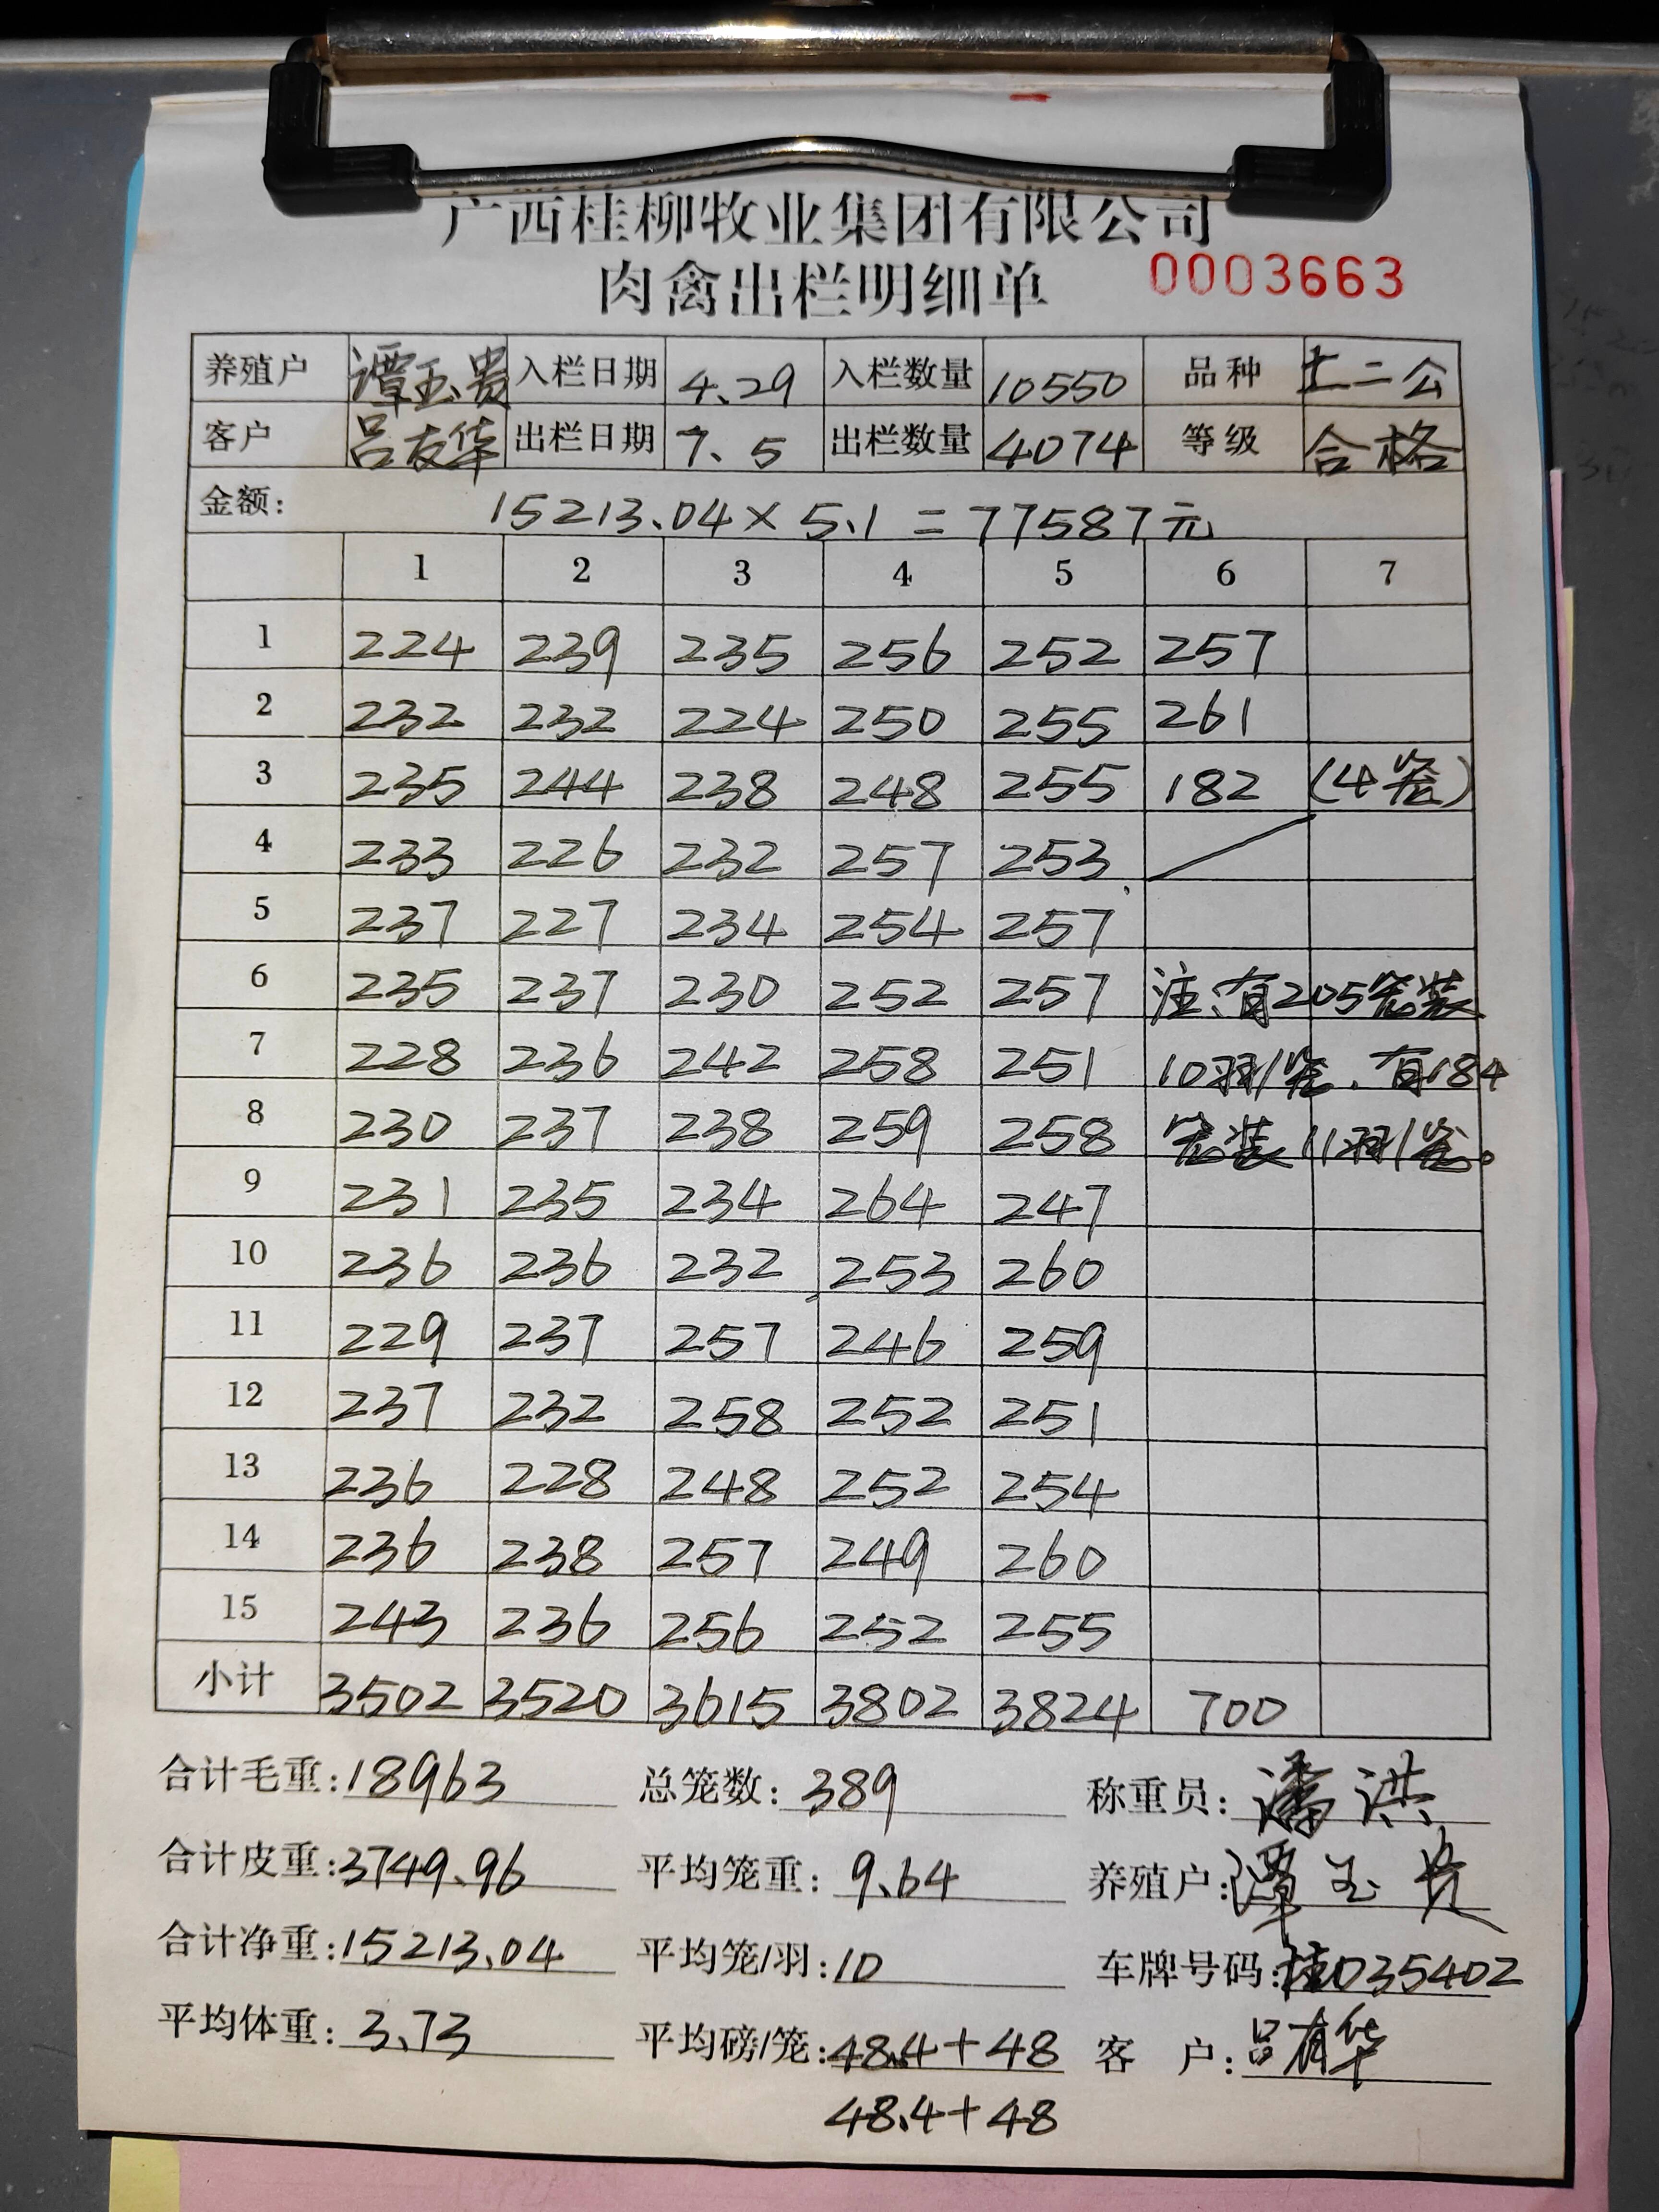 广西桂柳牧业集团有限公司
肉禽出栏明细单 0003663
养殖户 谭玉贵 入栏日期 4.29 入栏数量 10550 品种 土二公
客户 吕友华 出栏日期 7.5 出栏数量 4074 等级 合格
金额: 15213.04×5.1=77587元
1 2 3 4 5 6 7
1 224 239 235 256 252 257
2 232 232 224 250 255 261
3 235 244 238 248 255 182 (4笼)
4 233 226 232 257 253
5 237 227 234 254 257
6 235 237 230 252 257 注:有205笼装
7 228 236 242 258 251 10羽/笼.有184
8 230 237 238 259 258 笼装11羽/笼。
9 231 235 234 264 247
10 236 236 232 253 260
11 229 237 257 246 259
12 237 232 258 252 251
13 236 228 248 252 254
14 236 238 257 249 260
15 243 236 256 252 255
小计 3502 3520 3615 3802 3824 700
合计毛重:18963 总笼数: 389 称重员: 潘洪
合计皮重:3749.96 平均笼重: 9.64 养殖户:谭玉贵
合计净重:15213.04 平均笼/羽:10 车牌号码:桂D35402
平均体重: 3.73 平均磅/笼:48.4+48 客户:吕有华
48.4+48